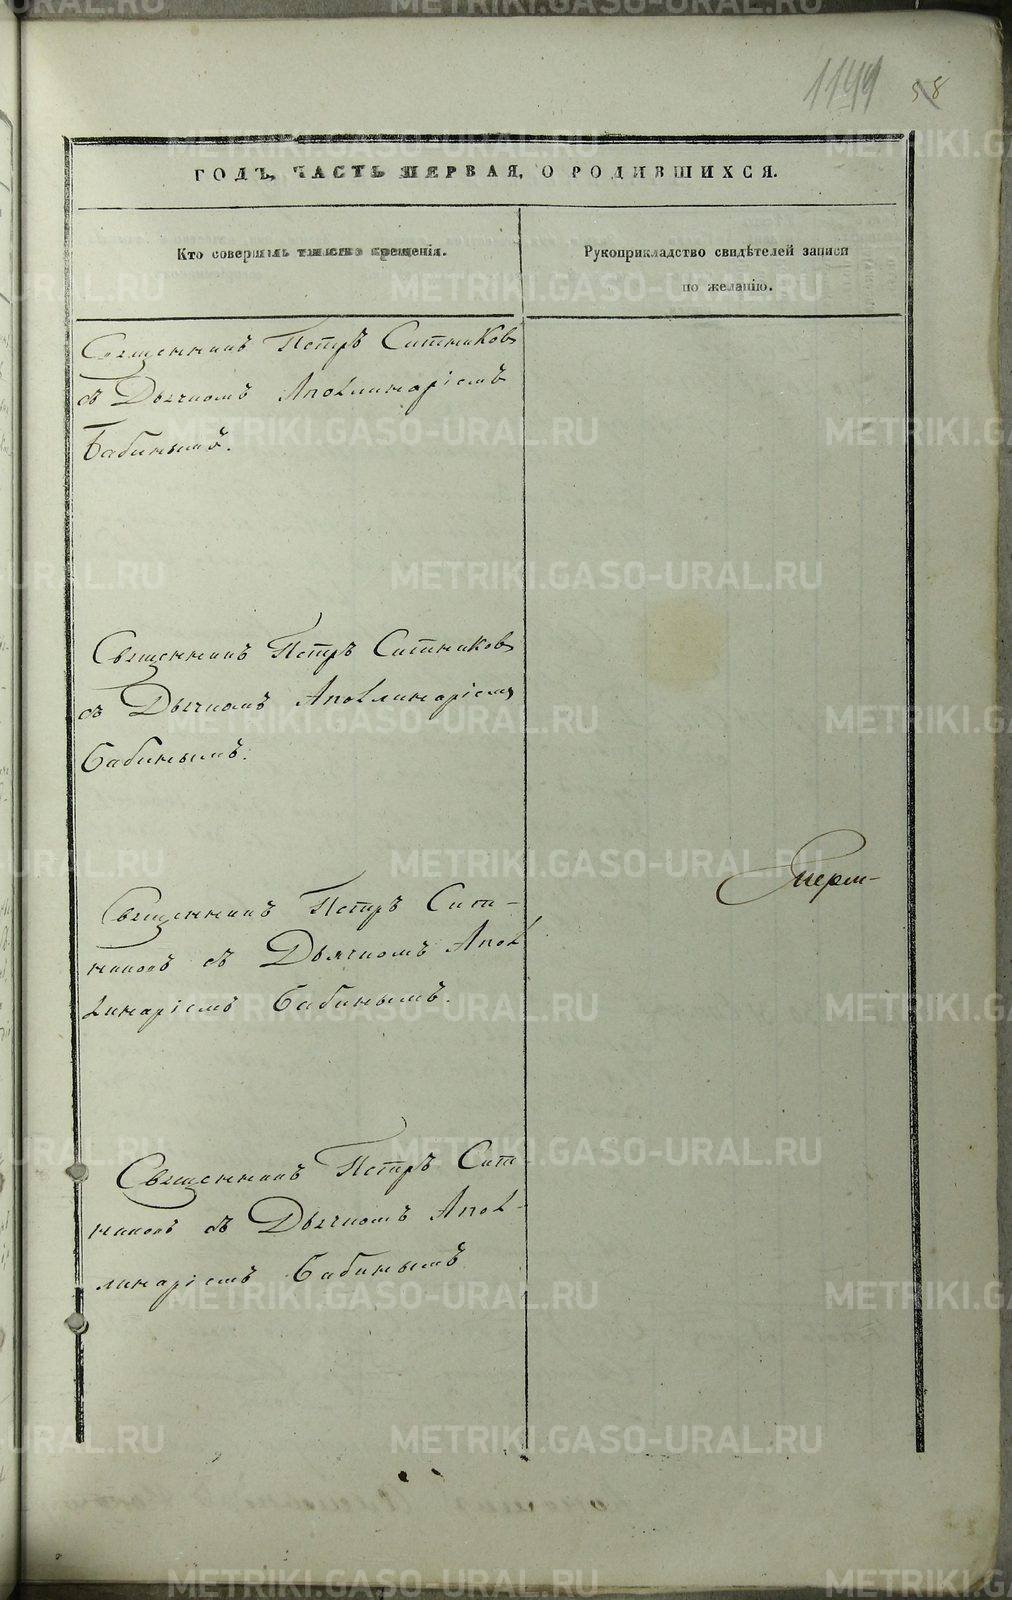 1144 58
ГОДЪ, ЧАСТЬ ПЕРВАЯ, О РОДИВШИХСЯ.
Кто совершалъ таинство крещенія.
Рукоприкладство свидѣтелей записи
по желанію.
Священникъ Петръ Ситниковъ
съ Дьячкомъ Аполлинаріемъ
Бабинымъ.
Священникъ Петръ Ситниковъ
съ Дьячкомъ Аполлинаріемъ
Бабинымъ.
Священникъ Петръ Сит-
никовъ съ Дьячкомъ Апол
линаріемъ Бабинымъ.
Священникъ Петръ Сит
никовъ съ Дьячкомъ Апол-
линаріемъ Бабинымъ
METRIKI.GASO-URAL.RU